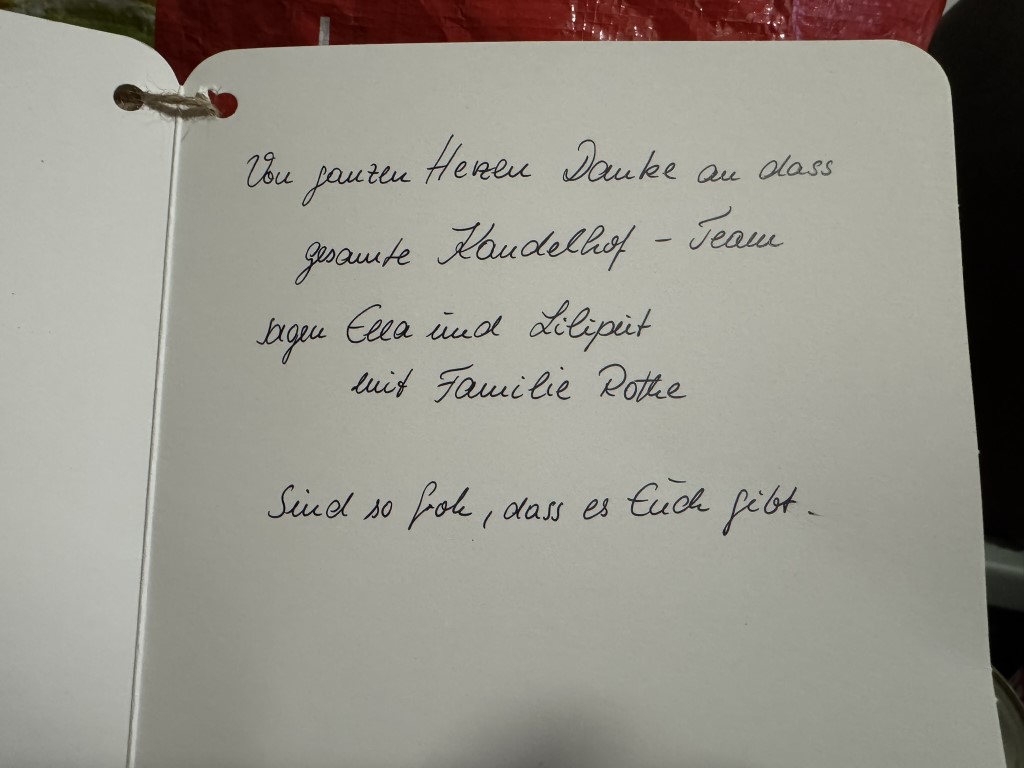 Von ganzen Herzen Danke an dass
gesamte Kandelhof - Team
sagen Ella und Liliput
mit Familie Rothe
Sind so froh, dass es Euch gibt.